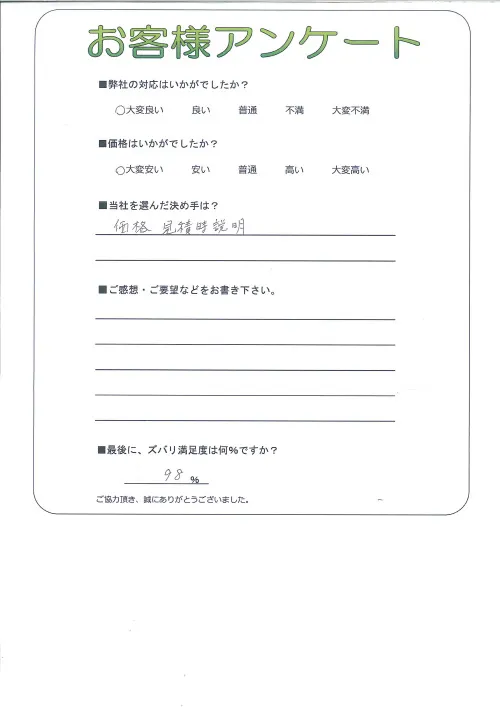 お客様アンケート
■弊社の対応はいかがでしたか？
○大変良い 良い 普通 不満 大変不満
■価格はいかがでしたか？
○大変安い 安い 普通 高い 大変高い
■当社を選んだ決め手は？
価格 見積時説明
■ご感想・ご要望などをお書き下さい。
■最後に、ズバリ満足度は何%ですか？
98 %
ご協力頂き、誠にありがとうございました。